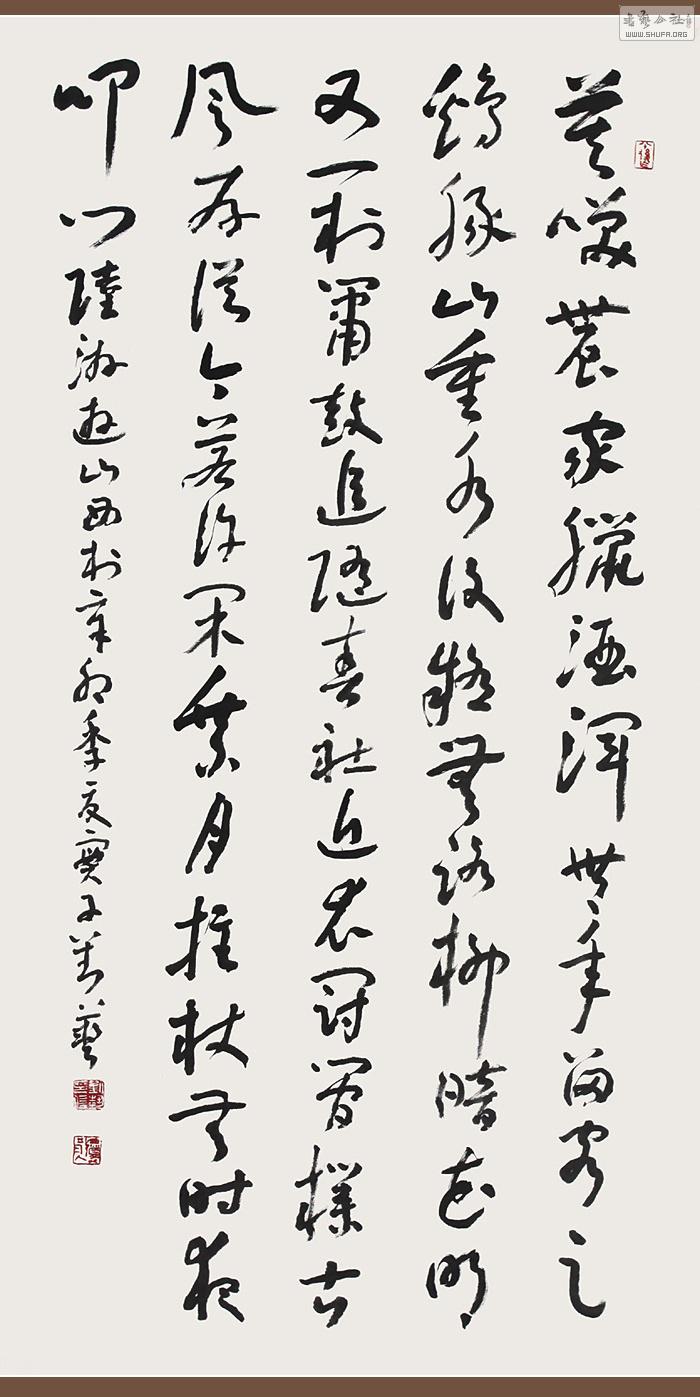 書藝公社
WWW.SHUFA.ORG
莫咲農家臘酒渾豐年留客足
鷄豚山重水復疑無路柳暗花明
又一村簫鼓追隨春社近衣冠簡樸古
風存從今若許閑乘月拄杖無時夜
叩門陸游遊山西村辛卯季夏